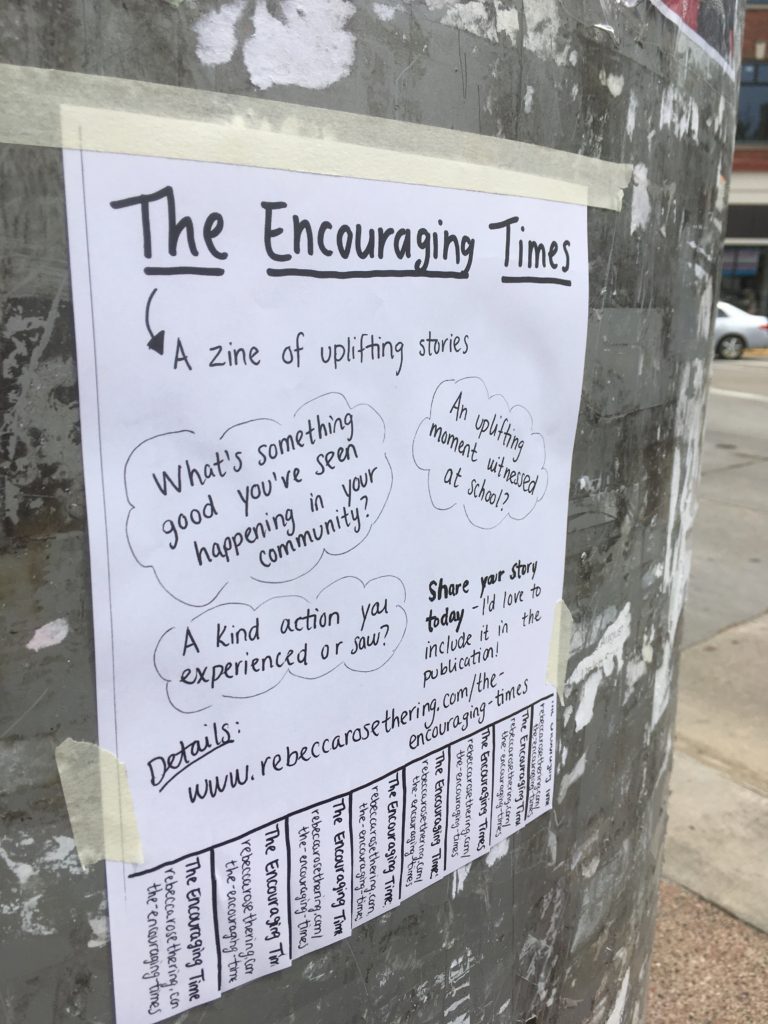 The Encouraging Times
A zine of uplifting stories
What's something
good you've seen
happening in your
community?
An uplifting
moment witnessed
at school?
A kind action you
experienced or saw?
Share your story
today - I'd love to
include it in the
publication!
Details:
www.rebeccarosethering.com/the-
encouraging-times
The Encouraging Time
rebeccarosethering.com
the-encouraging-times
The Encouraging Tim
rebeccarosethering.com
the-encouraging-time
The Encouraging Time
rebeccarosethering.com/
the-encouraging-times
The Encouraging Time
rebeccarosethering.com
the-encouraging-times
The Encouraging Time
rebeccarosethering.com/
the-encouraging-times
The Encouraging Times
rebeccarosethering.com/
the-encouraging-times
The Encouraging Time
rebeccarosethering.com/
the-encouraging-times
rebeccarosethering.com/
the-encouraging-times